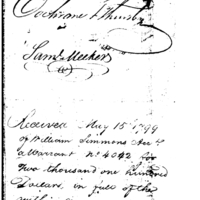 Cochrane & Thursby
Saml. Meeker
Received May 15 1799
of William Simmons Acct
a Warrant No. 4042 for
two thousand one hundred
Dollars, in full of the